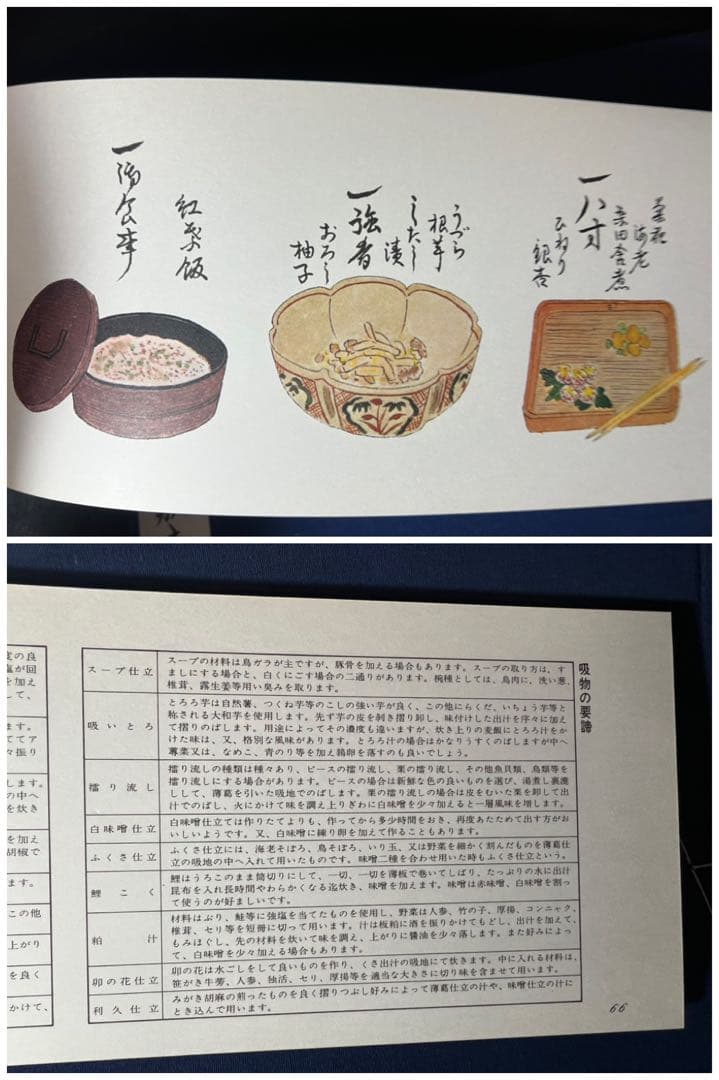 一八寸
菊花
海老
ひねり
銀杏
一強肴
うづら
根芋
したし
漬
おろし
柚子
一御食事
紅葉飯
吸物の要諦
スープ仕立
スープの材料は鳥ガラが主ですが、豚骨を加える場合もあります。スープの取り方は、す
ましにする場合と、白くにごす場合の二通りがあります。椀種としては、鳥肉に、洗い葱、
椎茸、露生姜等用い臭みを取ります。
吸いとろ
とろろ芋は自然薯、つくね芋等のこしの強い芋が良く、この他にらくだ、いちょう芋等と
称される大和芋を使用します。先ず芋の皮を剥き摺り卸し、味付けした出汁を序々に加え
て摺りのばします。用途によってその濃度も違いますが、炊き上りの麦飯にとろろ汁をか
けた味は、又、格別な風味があります。とろろ汁の場合はかなりうすくのばしますが中へ
蓴菜又は、なめこ、青のり等を加え鶉卵を落すのも良いでしょう。
擂り流し
擂り流しの種類は種々あり、ピースの擂り流し、栗の擂り流し、その他魚貝類、鳥類等を
擂り流しにする場合があります。ピースの場合は新鮮な色の良いものを選び、湯煮し裏漉
しして、薄葛を引いた吸地でのばします。栗の擂り流しの場合は皮をむいた栗を卸して出
汁でのばし、火にかけて味を調え上りぎわに白味噌を少々加えると一層風味を増します。
白味噌仕立
白味噌仕立ては作りたてよりも、作ってから多少時間をおき、再度あたためて出す方がお
いしいようです。又、白味噌に練り卵を加えて作ることもあります。
ふくさ仕立
ふくさ仕立には、海老そぼろ、鳥そぼろ、いり玉、又は野菜を細かく割んだものを薄葛仕
立の吸地の中へ入れて用いたものです。味噌二種を合わせ用いた時もふくさ仕立という。
鯉こく
鯉はうろこのまま筒切りにして、一切、一切を薄板で巻いてしばり、たっぷりの水に出汁
昆布を入れ長時間やわらかくなる迄炊き、味噌を加えます。味噌は赤味噌、白味噌を割っ
て使うのが好ましいです。
粕汁
材料はぶり、鮭等に強塩を当てたものを使用し、野菜は人参、竹の子、厚揚、コンニャク、
椎茸、セリ等を短冊に切って用います。汁は板粕に酒を振りかけてもどし、出汁を加えて、
もみほぐし、先の材料を炊いて味を調え、上がりに醤油を少々落します。また好みによっ
て、白味噌を少々加える場合もあります。
卯の花仕立
卯の花は水ごしをして良いものを作り、くさ出汁の吸地にて炊きます。中に入れる材料は、
笹がき牛蒡、人参、独活、セリ、厚揚等を適当な大きさに切り味を含ませて用います。
利久仕立
みがき胡麻の煎ったものを良く摺りつぶし好みによって薄葛仕立の汁や、味噌仕立の汁に
とき込んで用います。
66